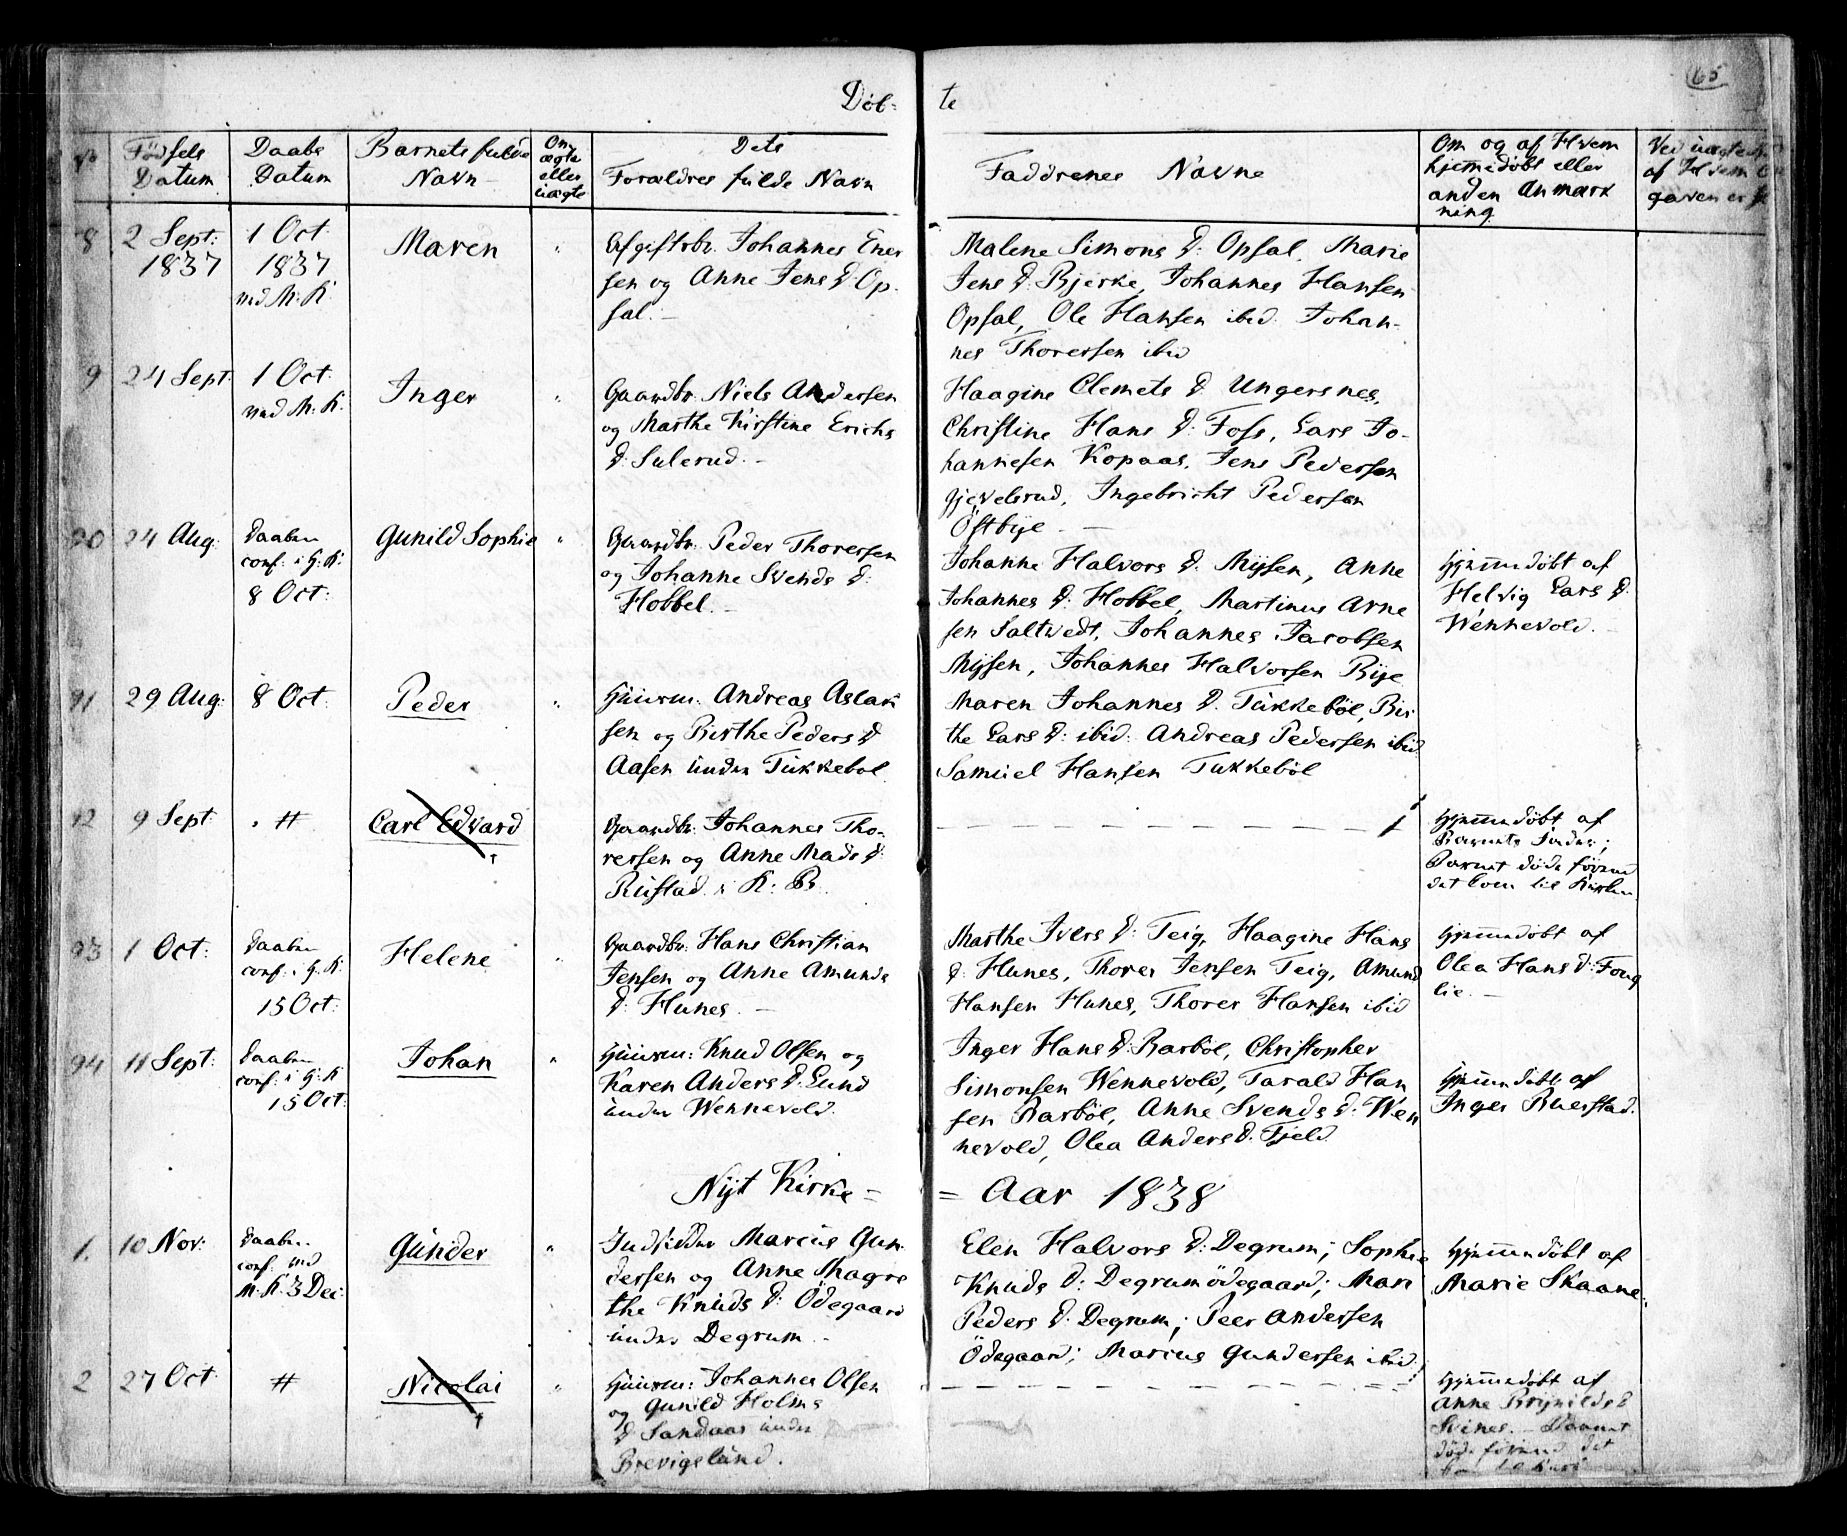 Døb-
te
65
No
Fødsels
Datum
Daabs
Datum
Barnets fulde
Navn
Om
ægte
eller
uægte
Dets
Forældres fulde Navn
Faddrenes Navne
Om og af Hvem
hjemmedøbt eller
anden Anmærk
ning.
Ved uægte
af Hvem
gaven er
8
2 Sept:
1837
1 Oct
1837
ved M: K:
Maren
"
Afgiftsbr. Johannes Ener
sen og Anne Jens D: Op-
sal.
Malene Simons D: Opsal, Marie
Jens D: Bjerke, Johannes Hansen
Opsal, Ole Hansen ibid. Johan-
nes Thoressen ibid
9
24 Sept:
1 Oct
ved M: K:
Inger
"
Gaardbr. Niels Andersen
og Marthe Kirstine Erichs
D: Sulerud.
Haagine Clemets D: Ungersnes,
Christine Hans D: Foss, Lars Jo-
hannesen Kopaas, Jens Pedersen
Gjevelsrud, Ingebricht Pedersen
Östbye
90
24 Aug:
Daaben
conf: i H: K:
8 Oct:
Gunild Sophie
"
Gaardbr. Peder Thoressen
og Johanne Svends D:
Hobbel.
Johanne Halvors D: Mysen, Anne
Johannes D: Hobbel, Martinus Arne
sen Saltvedt, Johannes Jacobsen
Mysen, Johannes Halvorsen Bye
Hjemmedøbt af
Helvig Lars D:
Wennevold.
91
29 Aug:
8 Oct:
Peder
"
Huusm: Andreas Aslak
sen og Birthe Peders D
Aasen under Tukkebøl
Maren Johannes D: Tukkebøl, Bir
the Lars D: ibid: Andreas Pedersen ibid
Samuel Hansen Tukkebøl
92
9 Sept:
#
Carl Edvard
†
Gaardbr: Johannes Tho-
ressen og Anne Mads D:
Rustad i K: B.
Hjemmedøbt af
Barnets Fader;
Barnet døde førend
det kom til Kirken
93
1 Oct:
Daaben
conf: i H: K:
15 Oct:
Helene
"
Gaardbr: Hans Christian
Jensen og Anne Amunds
D: Hunes.
Marthe Ivers D: Teig, Haagine Hans
D: Hunes, Thorer Jensen Teig, Amund
Hansen Hunes, Thorer Hansen ibid
Hjemmedøbt af
Olea Hans D: Foug
lie.
94
11 Sept:
Daaben
conf: i H: K
15 Oct:
Johan
"
Huusm: Knud Olsen og
Karen Anders D: Lund
under Wennevold.
Inger Hans D: Barbøl, Christopher
Simonsen Wennevold, Tarald Han
sen Barbøl, Anne Svends D: Wen
nevold, Olea Anders D: Fjeld
Hjemmedøbt af
Inger Ruerstad.
Nyt Kirke =
= Aar 1838
1.
10 Nov:
Daaben
conf: ved
M: K: 3 Dec:
Gunder
"
Marcus Gun
dersen og Anne Magre
the Knuds D: Ödegaard
under Degrum.
Elen Halvors D: Degrum; Sophie
Knuds D: Degrumödegaard; Mari
Peders D: Degrum; Peer Andersen
Ödegaard; Marius Gundersen ibid
Hjemmedøbt af
Marie Skaane
2
27 Oct
#
Nicolai
†
"
Huusm: Johannes Olsen
og Gunild Holms
D Sandaas under
Brevigslund.
Hjemmedøbt af
Anne Brynilds D
Svines. Barnet
døde førend det
kom til Kirke